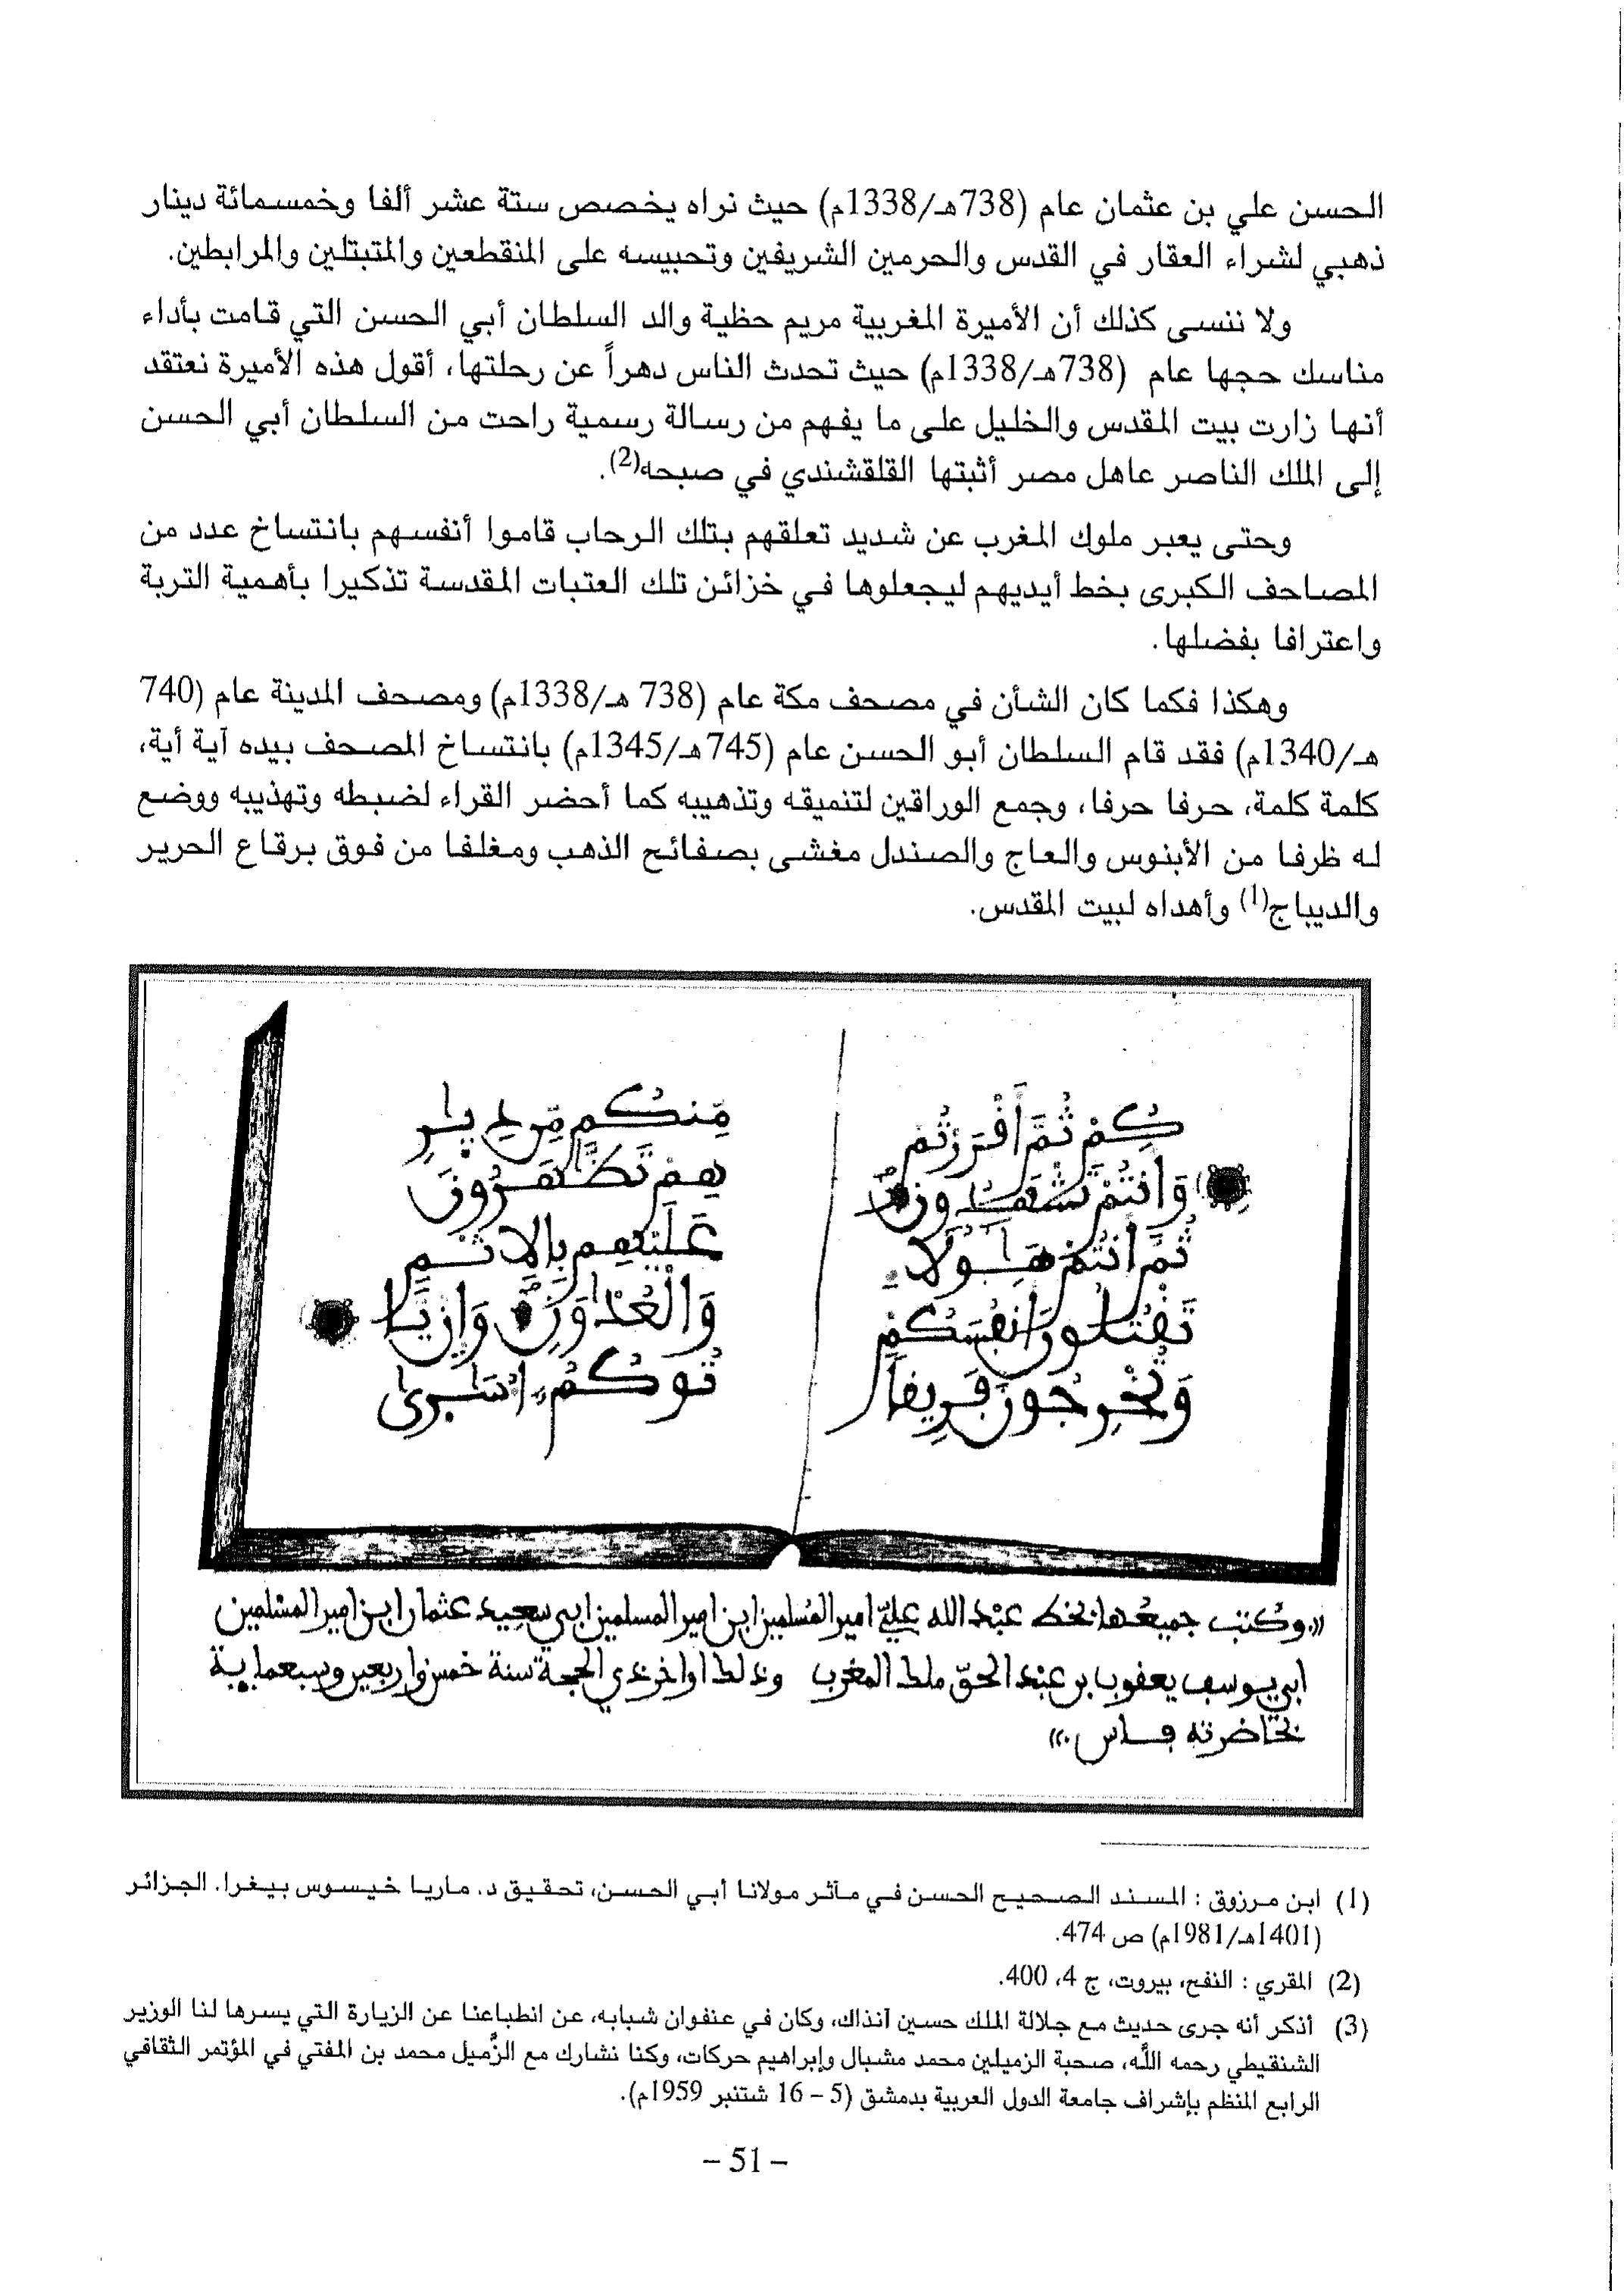 الحسن علي بن عثمان عام (738هـ/1338م) حيث نراه يخصص ستة عشر ألفا وخمسمائة دينار
ذهبي لشراء العقار في القدس والحرمين الشريفين وتحبيسه على المنقطعين والمتبتلين والمرابطين.
ولا ننسى كذلك أن الأميرة المغربية مريم حظية والد السلطان أبي الحسن التي قامت بأداء
مناسك حجها عام (738هـ/1338م) حيث تحدث الناس دهراً عن رحلتها، أقول هذه الأميرة نعتقد
أنها زارت بيت المقدس والخليل على ما يفهم من رسالة رسمية راحت من السلطان أبي الحسن
إلى الملك الناصر عاهل مصر أثبتها القلقشندي في صبحه(2).
وحتى يعبر ملوك المغرب عن شديد تعلقهم بتلك الرحاب قاموا أنفسهم بانتساخ عدد من
المصاحف الكبرى بخط أيديهم ليجعلوها في خزائن تلك العتبات المقدسة تذكيرا بأهمية التربة
واعترافا بفضلها.
وهكذا فكما كان الشأن في مصحف مكة عام (738 هـ/1338م) ومصحف المدينة عام (740
هـ/1340م) فقد قام السلطان أبو الحسن عام (745هـ/1345م) بانتساخ المصحف بيده آية أية،
كلمة كلمة، حرفا حرفا، وجمع الوراقين لتنميقه وتذهيبه كما أحضر القراء لضبطه وتهذيبه ووضع
له ظرفا من الأبنوس والعاج والصندل مغشى بصفائح الذهب ومغلفا من فوق برقاع الحرير
والديباج(1) وأهداه لبيت المقدس.
كم ثُمَّ أَقْرَرْتُمْ
وَأَنتُمْ تَشْهَدُونَ
ثُمَّ أَنتُمْ هَٰؤُلَاءِ
تَقْتُلُونَ أَنفُسَكُمْ
وَتُخْرِجُونَ فَرِيقاً
مِّنكُم مِّن دِيَارِ
هِمْ تَظَّاهَرُونَ
عَلَيْهِم بِالْإِثْمِ
وَالْعُدْوَانِ وَإِن يَا
تُوكُمْ أُسَارَىٰ
«وكتب جميعها بخط عبد الله علي امير المسلمين ابن امير المسلمين ابي سعيد عثمان ابن امير المسلمين
ابي يوسف يعقوب بن عبد الحق ملك المغرب وذلك اواخر ذي الحجة سنة خمس واربعين وسبعماية
بحاضرته فاس.»
(1) ابن مرزوق : المسند الصحيح الحسن في مآثر مولانا أبي الحسن، تحقيق د. ماريا خيسوس بيغرا. الجزائر
(1401هـ/1981م) ص 474.
(2) المقري : النفح، بيروت، ج 4، 400.
(3) أذكر أنه جرى حديث مع جلالة الملك حسين آنذاك، وكان في عنفوان شبابه، عن انطباعنا عن الزيارة التي يسرها لنا الوزير
الشنقيطي رحمه اللَّه، صحبة الزميلين محمد مشبال وإبراهيم حركات، وكنا نشارك مع الزَّميل محمد بن المفتي في المؤتمر الثقافي
الرابع المنظم بإشراف جامعة الدول العربية بدمشق (5 – 16 شتنبر 1959م).
– 51 –